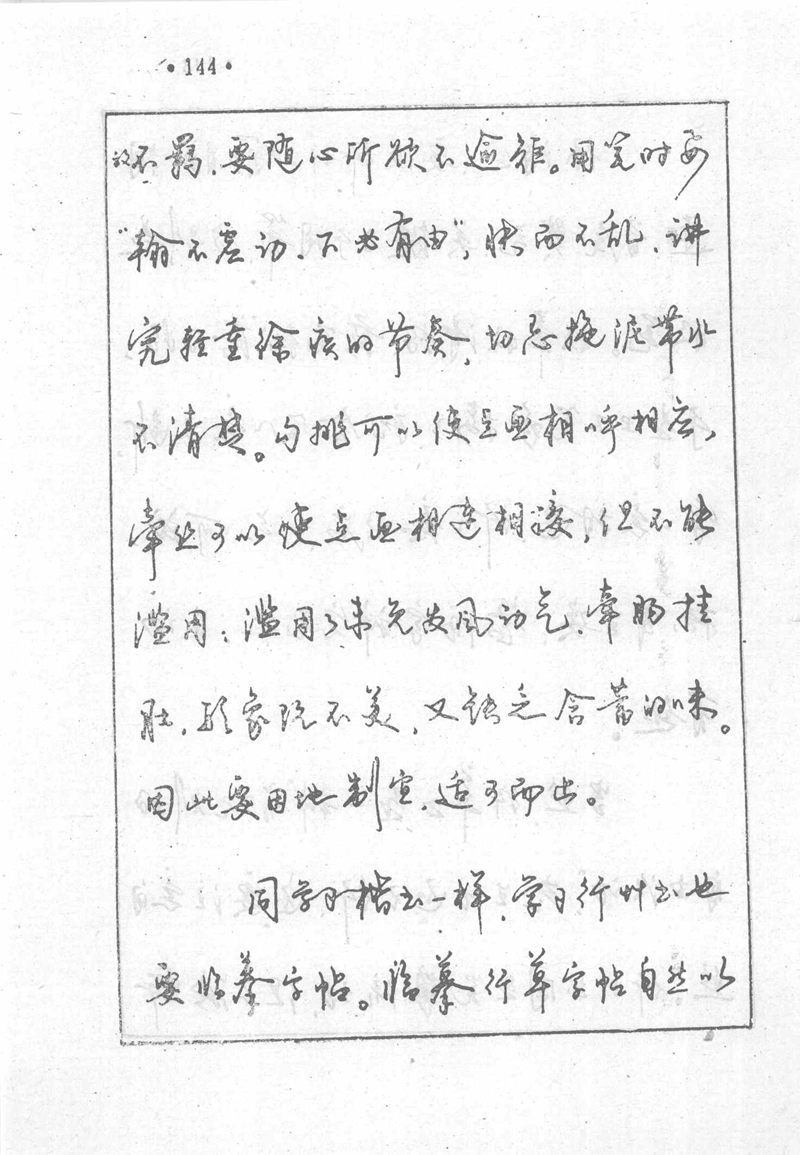 ·144·
放不羁，要随心所欲不逾矩。用笔时要
“翰不虚动，下必有由”，快而不乱，讲
究轻重徐疾的节奏，切忌拖泥带水
不清楚。勾挑可以使点画相呼相应，
牵丝可以使点画相连相接，但不能
滥用；滥用了未免发风动气，牵肠挂
肚，形象既不美，又缺乏含蓄的味。
因此要因地制宜，适可而止。
同学习楷书一样，学习行草书也
要临摹字帖。临摹行草字帖自然以